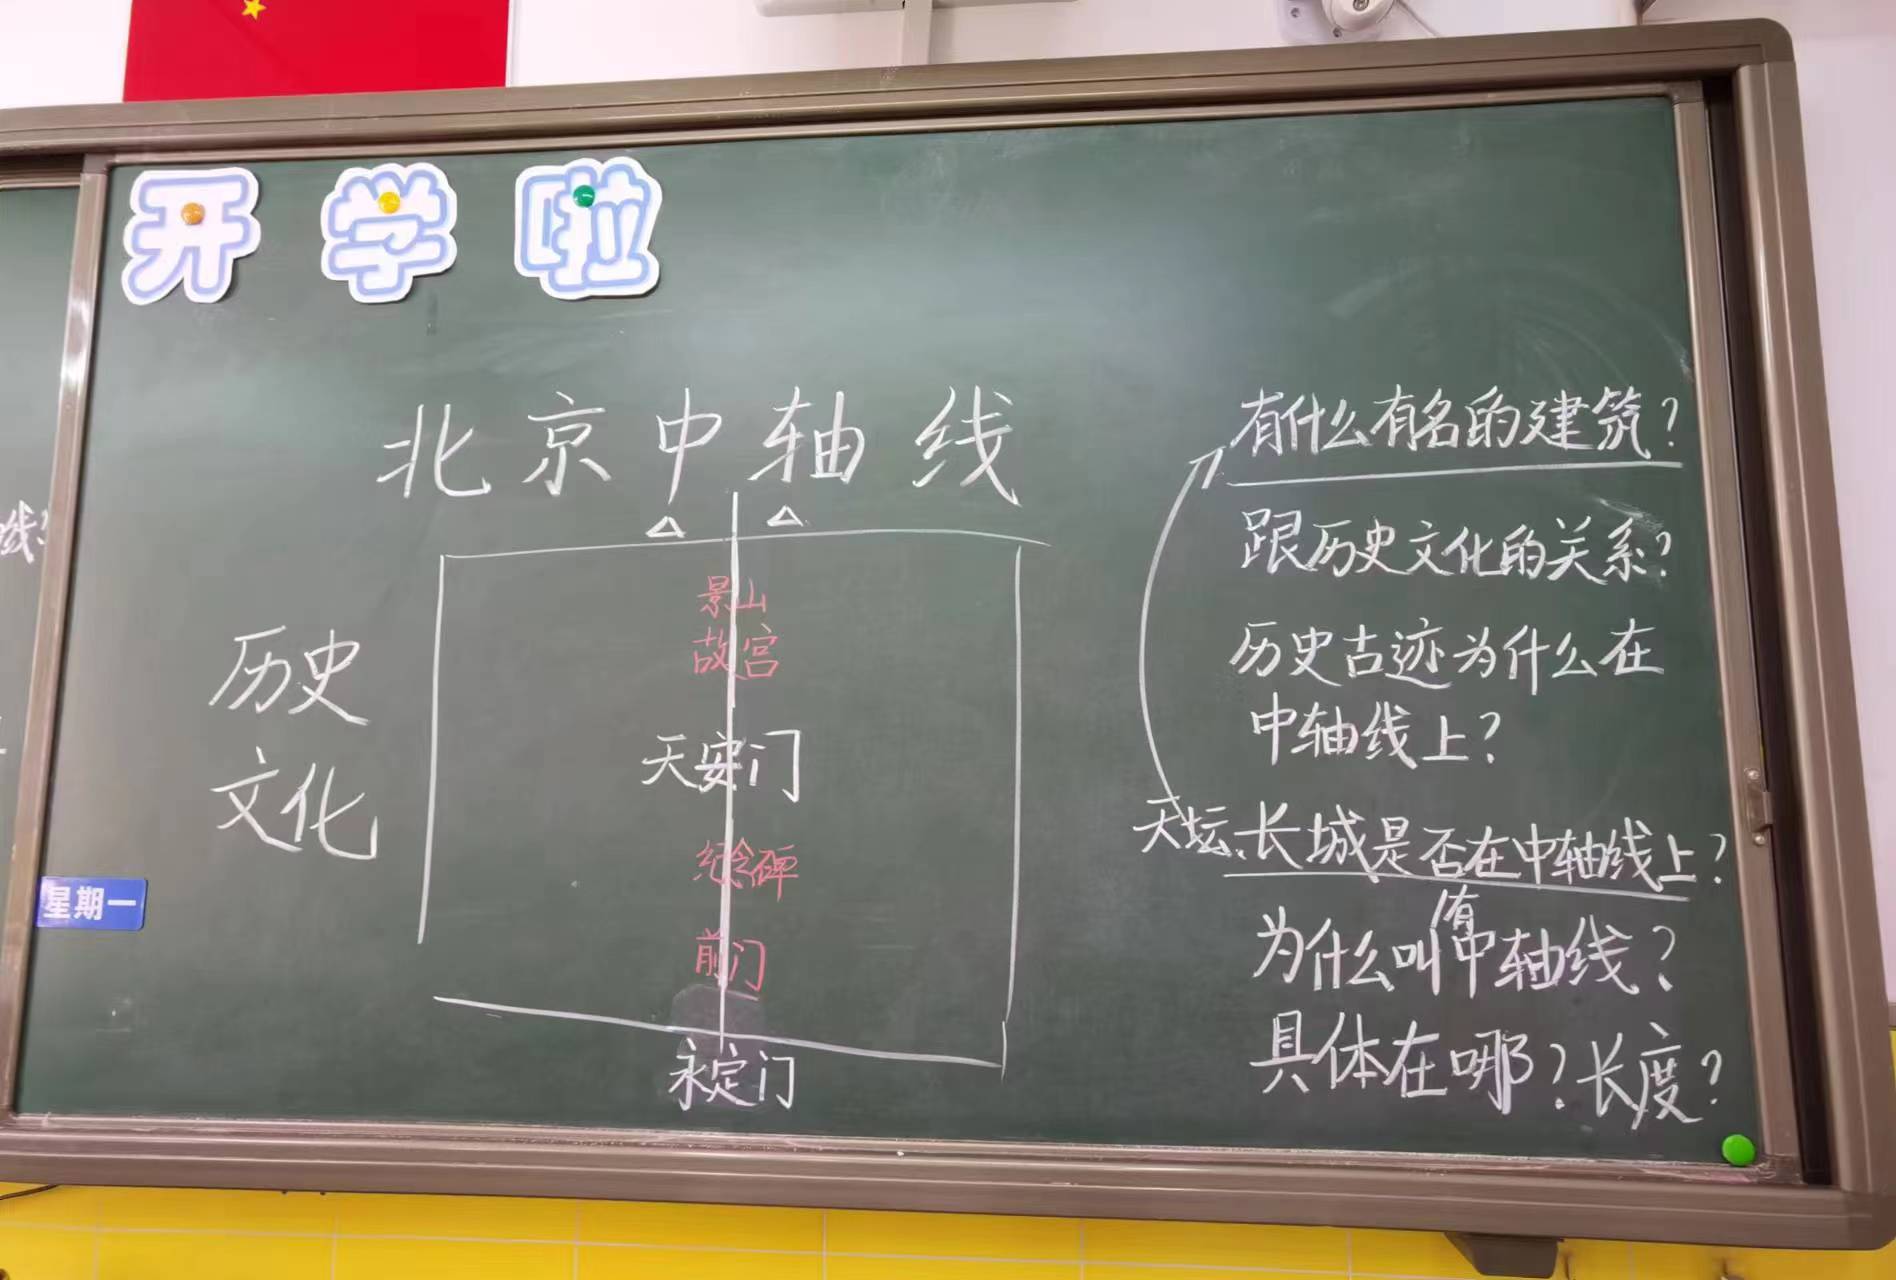 开学啦
北京中轴线
历史
文化
景山
故宫
天安门
纪念碑
前门
永定门
星期一
有什么有名的建筑?
跟历史文化的关系?
历史古迹为什么在
中轴线上?
天坛、长城是否在中轴线上?
有
为什么叫中轴线?
具体在哪?长度?
线?